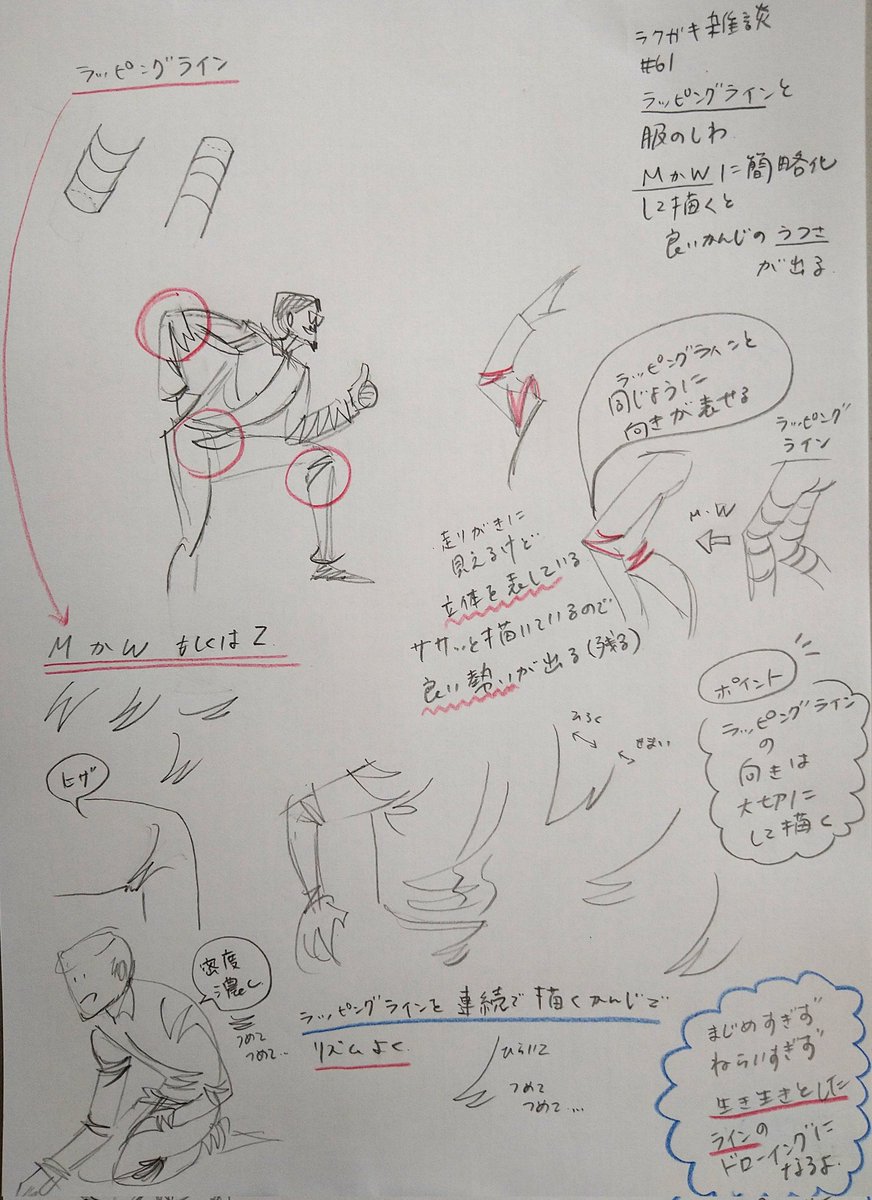 ラクガキ雑談
#61
ラッピングラインと
服のしわ
MかWに簡略化
して描くと
良いかんじのラフさ
が出る
ラッピングライン
ラッピングラインと
同じように
向きが表せる
ラッピング
ライン
M・W
走りがきに
見えるけど
立体を表している
ササッと描いているので
良い勢いが出る(残る)
MかW もしくはZ
ヒザ
ひろく
せまい
ポイント
ラッピングライン
の
向きは
大切に
して描く
密度
濃く
つめて
つめて…
ラッピングラインを連続で描くかんじで
リズムよく
ひらいて
つめて
つめて…
まじめすぎず
ねらいすぎず
生き生きとした
ラインの
ドローイングに
なるよ.